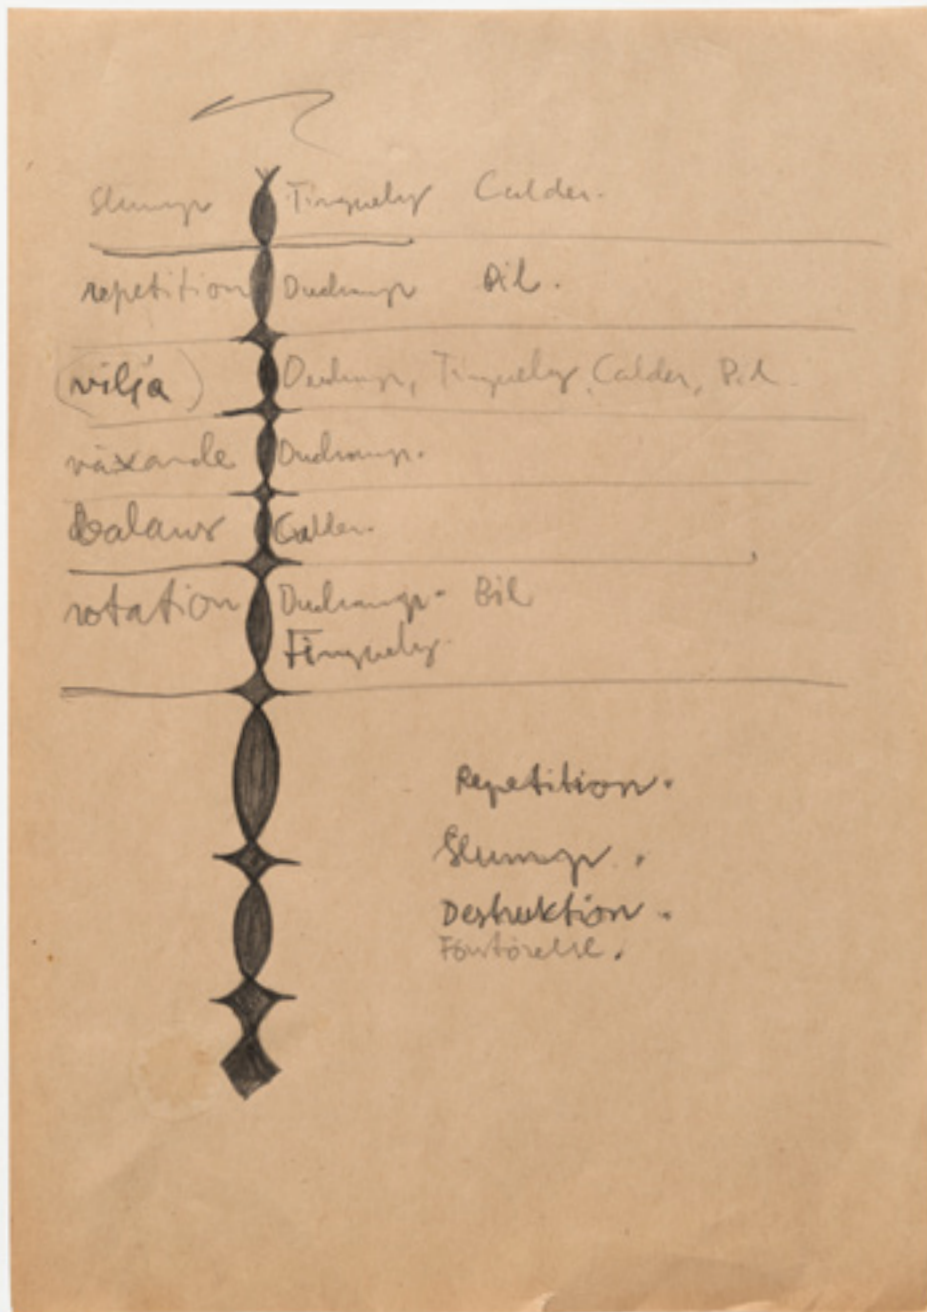 Slump Tinguely Calder.
repetition Duchamp Bil.
vilja Duchamp, Tinguely, Calder, Bil
växande Duchamp.
Balans Calder.
rotation Duchamp - Bil
Tinguely.
Repetition.
Slump.
Destruktion.
Förstörelse.